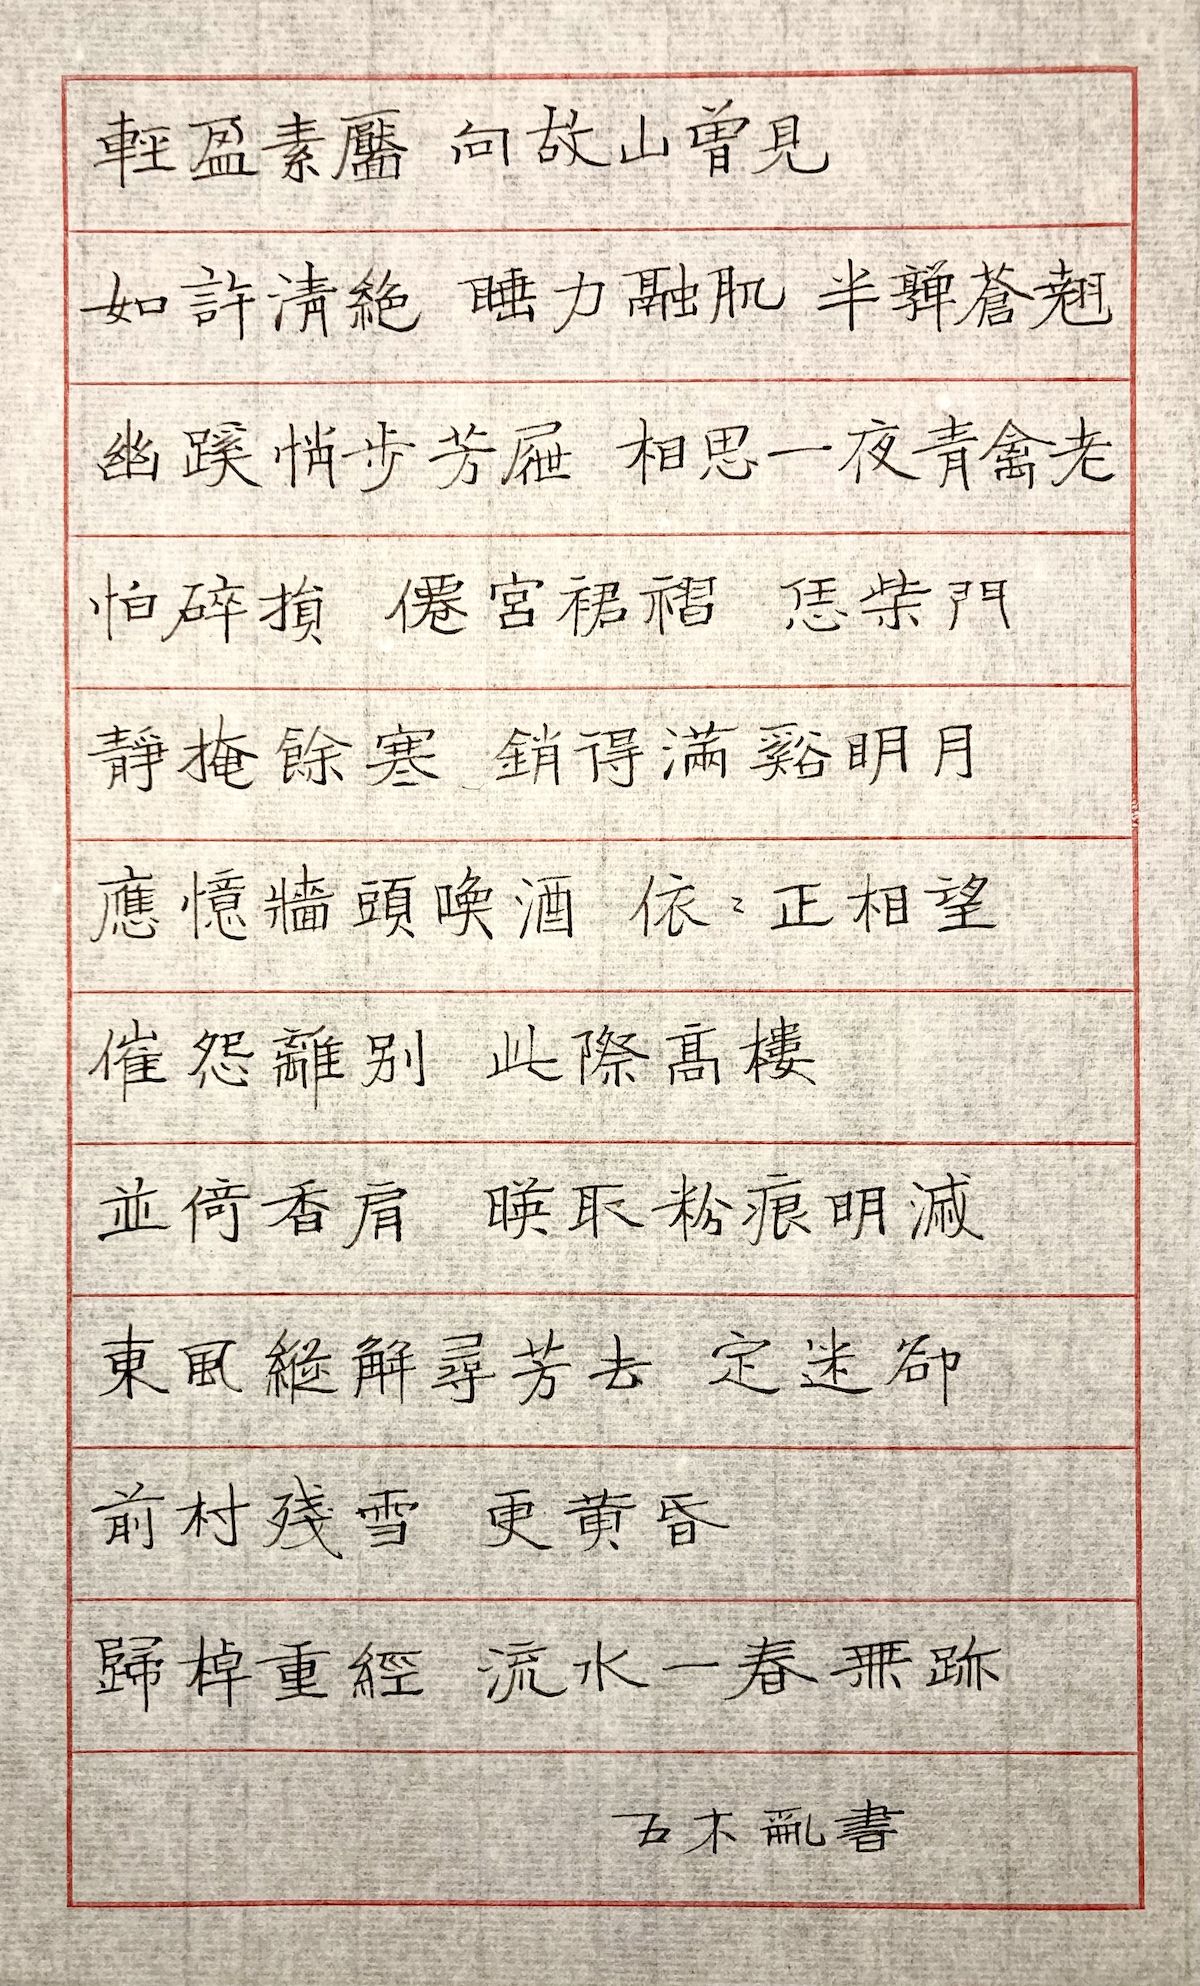 輕盈素靨 向故山曾見
如許清絶 睡力融肌 半嚲蒼翹
幽蹊悄步芳屧 相思一夜青禽老
怕碎損 僊宮裙褶 恁柴門
靜掩餘寒 銷得滿谿明月
應憶牆頭喚酒 依〻正相望
催怨離別 此際高樓
並倚香肩 暎取粉痕明滅
東風縱解尋芳去 定迷卻
前村殘雪 更黄昏
歸棹重經 流水一春無跡
五木亂書